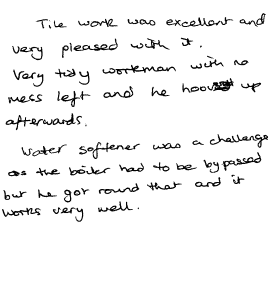 Tile work was excellent and
very pleased with it.
Very tidy workman with no
mess left and he up
afterwards.
Water softener was a challenge
as the boiler had to be bypassed
but he got round that and it
works very well.